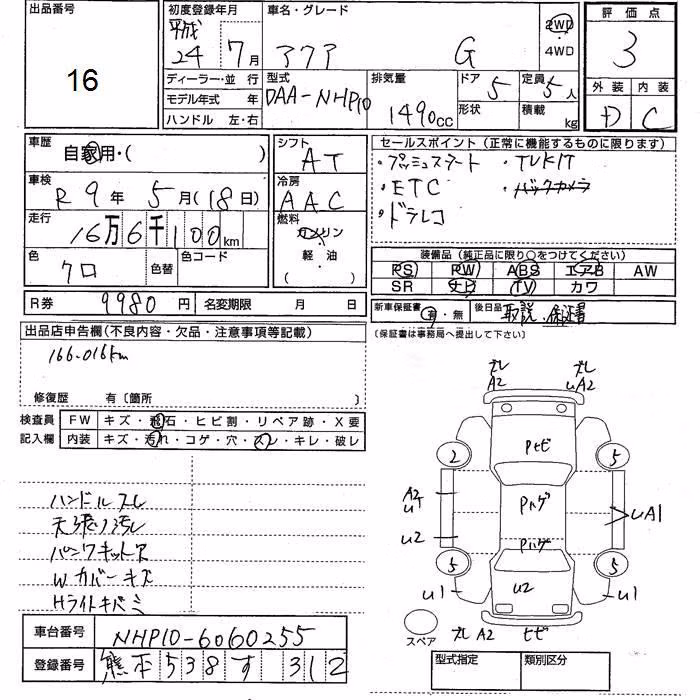 出品番号
16
初度登録年月
平成
24 7月
車名・グレード
アクア G
2WD
・
4WD
評価点
3
外装 内装
D C
ディーラー・並行
モデル年式 年
ハンドル 左・右
型式
DAA-NHP10
排気量
1490cc
ドア
5
定員
5人
形状
積載
kg
車歴
自家用・( )
シフト
AT
セールスポイント(正常に機能するものに限ります)
・プッシュスタート ・TVKIT
・ETC ・バックカメラ
・ドラレコ
車検
R 9年 5月(18日)
冷房
AAC
走行
16万6千100km
燃料
ガソリン
軽・油
( )
色
クロ
色替
色コード
装備品(純正品に限り○をつけてください)
PS PW ABS エアB AW
SR ナビ TV カワ
R券 9980円 名変期限 月 日
新車保証書
有・無
後日品
取説・保証書
(保証書は事務局へ提出して下さい)
出品店申告欄(不良内容・欠品・注意事項等記載)
166.016km
修復歴 有〔箇所 〕
検査員
記入欄
FW キズ・飛石・ヒビ割・リペア跡・X要
内装 キズ・汚れ・コゲ・穴・スレ・キレ・破レ
ハンドルスレ
天張り汚レ
パンクキット欠
Wカバーキズ
Hライトキバミ
ズレ
A2
ズレ
uA2
Pヒビ
2
5
A2
u1
Pハゲ
uA1
u2
Pハゲ
5
5
u1
u2
u1
スペア
ズレ A2 ヒビ
車台番号 NHP10-6060255
登録番号 熊本538す 312
型式指定 類別区分